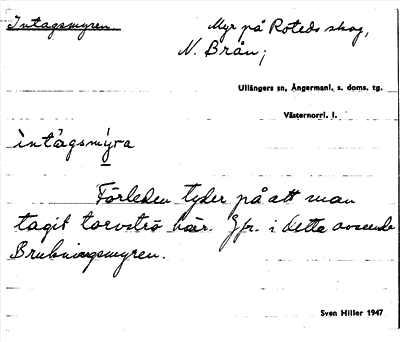 Intagsmyren
Myr på Roteds skog,
N. Brån;
Ullångers sn, Ångermanl. s. doms. tg.
Västernorrl. l.
ìntàgsmýra
Förleden tyder på att man
tagit torvströ här. Jfr. i detta avseende
Brukningsmyren.
Sven Hiller 1947